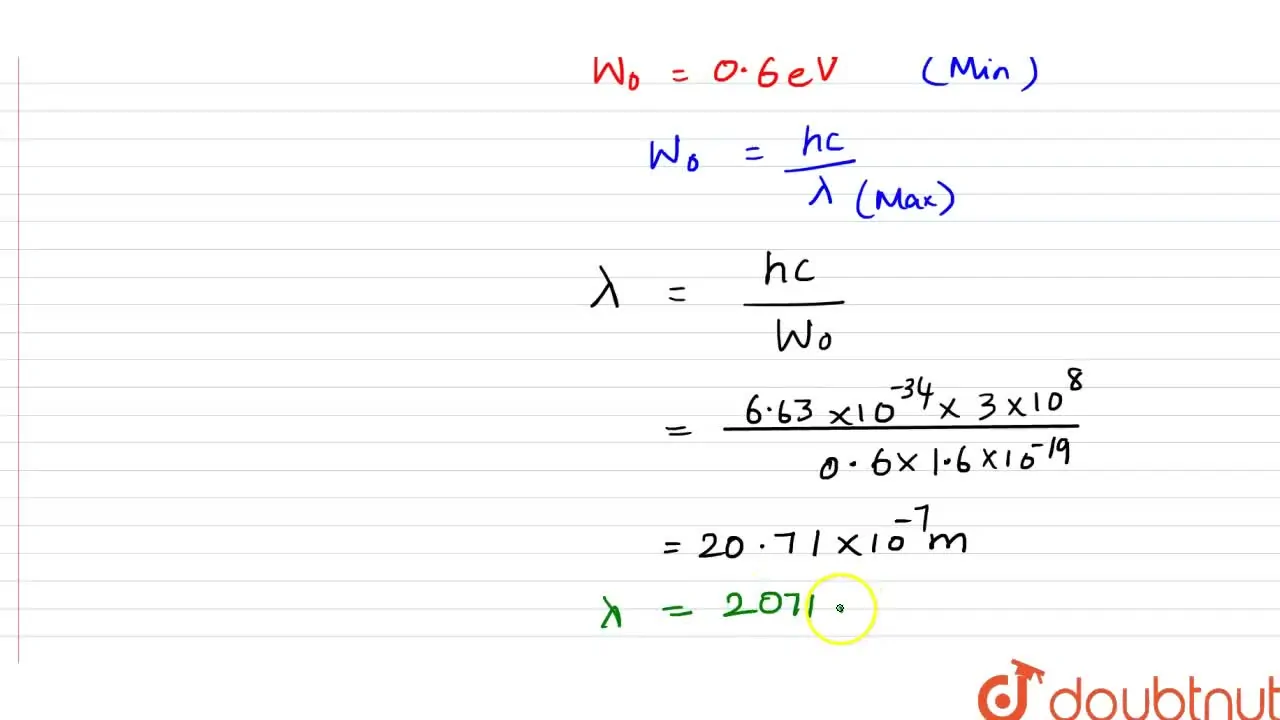 W₀ = 0.6eV (Min)
W₀ = hc / λ (Max)
λ = hc / W₀
= 6.63 × 10⁻³⁴ × 3 × 10⁸ / 0.6 × 1.6 × 10⁻¹⁹
= 20.71 × 10⁻⁷ m
λ = 2071.
doubtnut